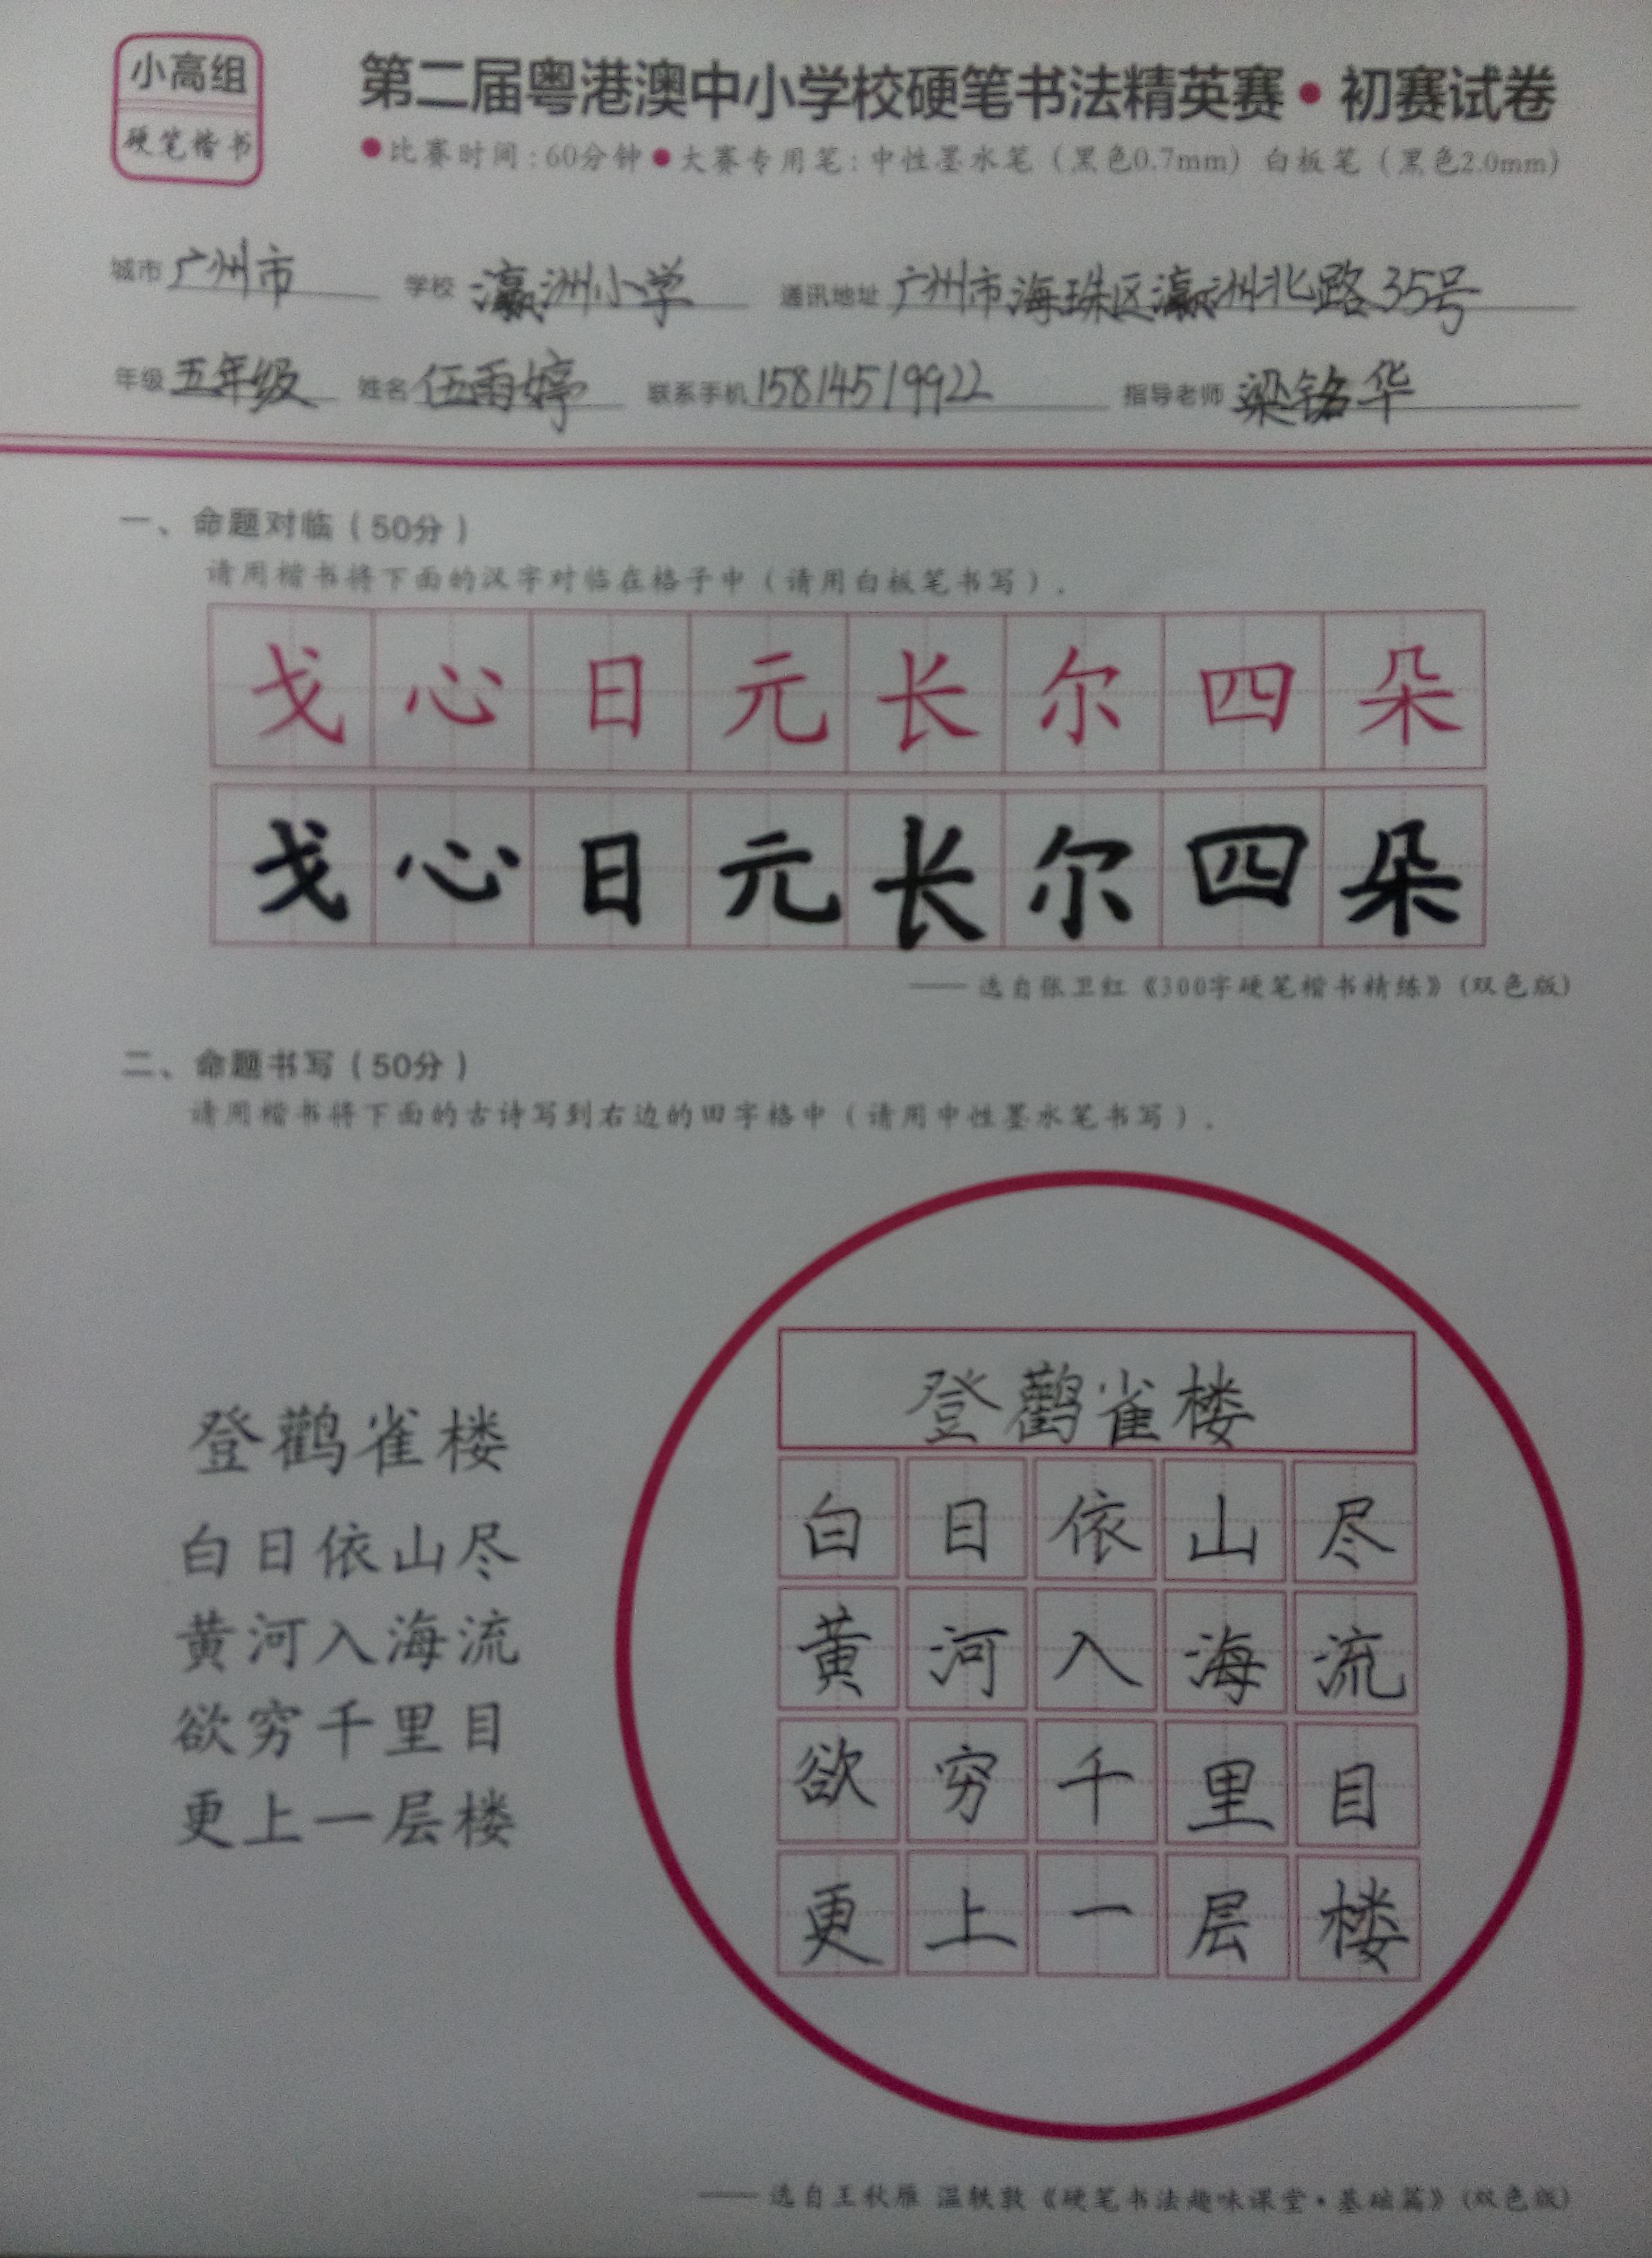 小高组
硬笔楷书
第二届粤港澳中小学校硬笔书法精英赛·初赛试卷
●比赛时间:60分钟●大赛专用笔:中性墨水笔(黑色0.7mm) 白板笔(黑色2.0mm)
城市 广州市 学校 瀛洲小学 通讯地址 广州市海珠区瀛洲北路35号
年级 五年级 姓名 伍雨婷 联系手机 15814519922 指导老师 梁铭华
一、命题对临(50分)
请用楷书将下面的汉字对临在格子中(请用白板笔书写).
戈心日元长尔四朵
戈心日元长尔四朵
——选自张卫红《300字硬笔楷书精练》(双色版)
二、命题书写(50分)
请用楷书将下面的古诗写到右边的田字格中(请用中性墨水笔书写).
登鹳雀楼
白日依山尽
黄河入海流
欲穷千里目
更上一层楼
登鹳雀楼
白日依山尽
黄河入海流
欲穷千里目
更上一层楼
——选自王秋雁 温轶敦《硬笔书法趣味课堂·基础篇》(双色版)